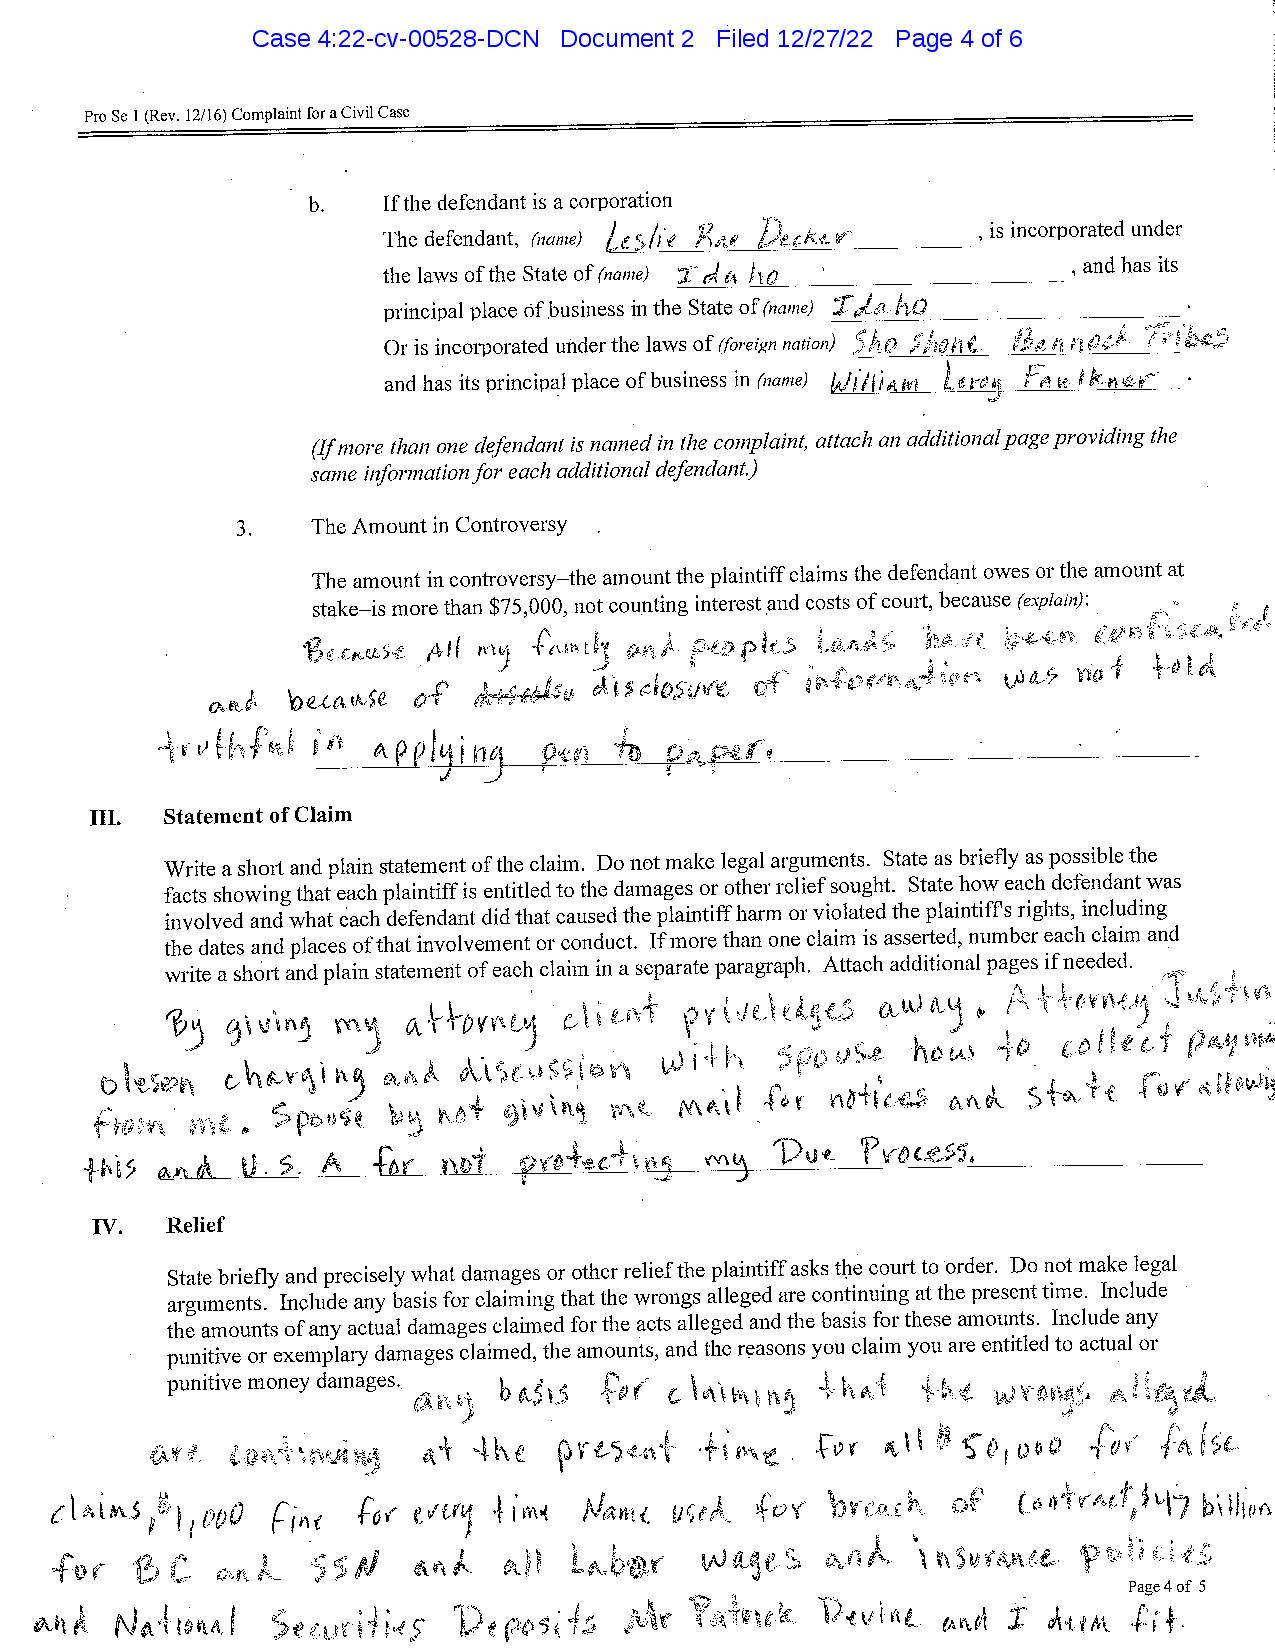 Case 4:22-cv-00528-DCN Document 2 Filed 12/27/22 Page 4 of 6
Pro Se 1 (Rev. 12/16) Complaint for a Civil Case
b. If the defendant is a corporation
The defendant, (name) Leslie Rae Decker , is incorporated under
the laws of the State of (name) Idaho , and has its
principal place of business in the State of (name) Idaho .
Or is incorporated under the laws of (foreign nation) Sho Shone Bannock Tribes
and has its principal place of business in (name) William Leroy Faulkner .
(If more than one defendant is named in the complaint, attach an additional page providing the
same information for each additional defendant.)
3. The Amount in Controversy
The amount in controversy–the amount the plaintiff claims the defendant owes or the amount at
stake–is more than $75,000, not counting interest and costs of court, because (explain):
Because All my family and peoples Lands have been confiscated
and because of disclosure of information was not told
truthful in applying pen to paper.
III. Statement of Claim
Write a short and plain statement of the claim. Do not make legal arguments. State as briefly as possible the
facts showing that each plaintiff is entitled to the damages or other relief sought. State how each defendant was
involved and what each defendant did that caused the plaintiff harm or violated the plaintiff's rights, including
the dates and places of that involvement or conduct. If more than one claim is asserted, number each claim and
write a short and plain statement of each claim in a separate paragraph. Attach additional pages if needed.
By giving my attorney client priveledges away. Attorney Justin
oleson charging and discussion with spouse how to collect payme
from me. Spouse by not giving me mail for notices and state for allowing
this and U.S.A for not protecting my Due Process.
IV. Relief
State briefly and precisely what damages or other relief the plaintiff asks the court to order. Do not make legal
arguments. Include any basis for claiming that the wrongs alleged are continuing at the present time. Include
the amounts of any actual damages claimed for the acts alleged and the basis for these amounts. Include any
punitive or exemplary damages claimed, the amounts, and the reasons you claim you are entitled to actual or
punitive money damages. any basis for claiming that the wrongs alleged
are continuing at the present time. For all $50,000 for false
claims, $1,000 fine for every time Name used for breach of contract, $47 billion
for BC and SSN and all Labor wages and insurance policies
Page 4 of 5
and National Securities Deposits Mr Patrick Devine and I deem fit.